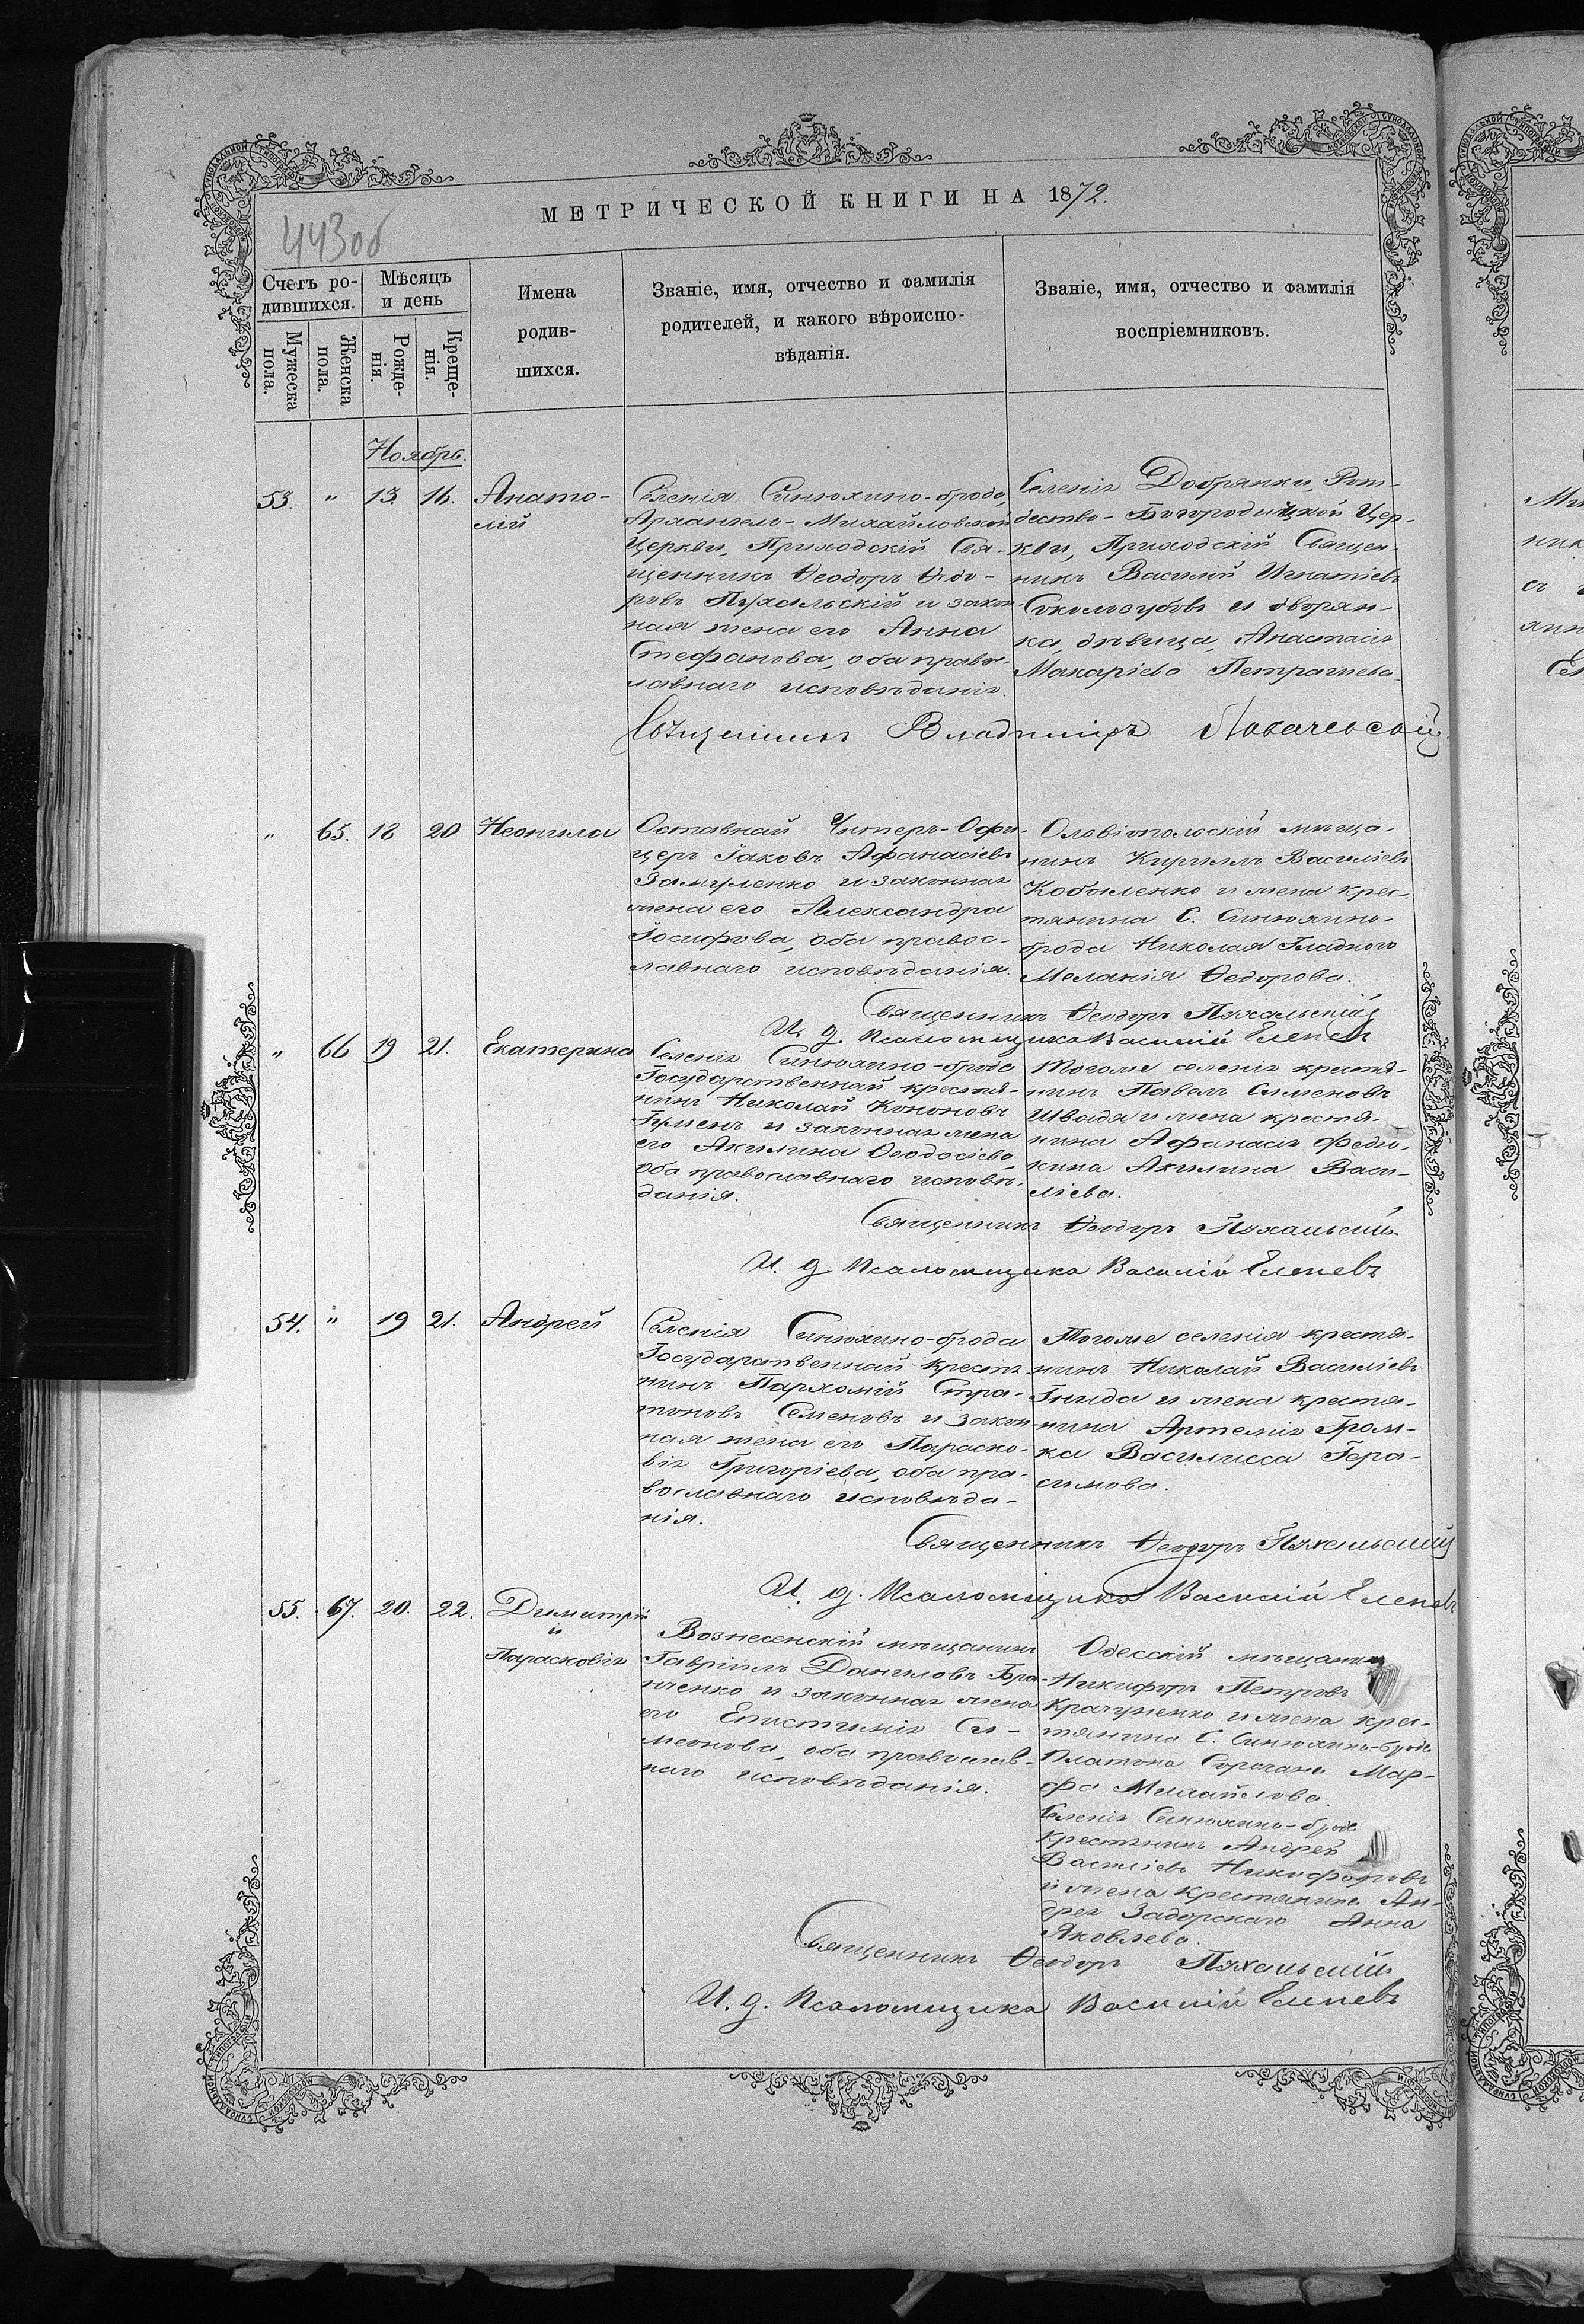 МЕТРИЧЕСКОЙ КНИГИ НА 1872.
443об
Счетъ родившихся.
Мѣсяцъ и день
Мужеска пола.
Женска пола.
Рожденія.
Крещенія.
Имена
родив-
шихся.
Званіе, имя, отчество и фамилія
родителей, и какого вѣроиспо-
вѣданія.
Званіе, имя, отчество и фамилія
воспріемниковъ.
Ноябрь.
53. " 13. 16. Анато-
лій
Селенія Синюхино-брода,
Архангело-Михайловской
Церкви, Приходскій Свя-
щенникъ Ѳеодоръ Ѳедо-
ровъ Пухальскій и закон-
ная жена его Анна
Стефанова, оба право-
славнаго исповѣданія.
Селенія Добрянки, Рож-
дество-Богородицкой Цер-
кви, Приходскій Священ-
никъ Василій Игнатіевъ
Соколозубовъ и дворян-
ка, дѣвица, Анастасія
Макаріева
Священникъ Владиміръ
" 65. 18 20 Неонила
Отставной Унтеръ-Офи-
церъ Іаковъ Афанасіевъ
Замуленко и законная
жена его Александра
Іосифова, оба правос-
лавнаго исповѣданія.
Олвіопольскій мѣща-
нинъ Кириллъ Василіевъ
Кобыленко и жена крес-
тянина С. Синюхино-
брода Николая Гладкого
Меланія Ѳедорова.
Священникъ Ѳеодоръ Пухальскій
И. д. Псаломщика Василій Еленевъ
" 66 19 21. Екатерина
Селенія Синюхино-брода
Государственный крестя-
нинъ Николай Кононовъ
и законная жена
его Акилина Ѳеодосіева,
оба православнаго исповѣ-
данія.
Тогоже селенія крестя-
нинъ Павелъ Семеновъ
Швыдя и жена крестя-
нина Афанасія Федю-
кина Акилина Васи-
ліева.
Священникъ Ѳеодоръ Пухальскій.
И. д. Псаломщика Василій Еленевъ
54. " 19 21. Андрей
Селенія Синюхино-брода
Государственный Крестя-
нинъ Пархомій Стра-
тоновъ Семеновъ и закон-
ная жена его Параско-
вія Григоріева, оба пра-
вославнаго исповѣда-
нія.
Тогоже селенія крестя-
нинъ Николай Василіевъ
Гнида и жена крестя-
нина Артемія Гром-
ка Василисса Гера-
симова.
Священникъ Ѳеодоръ Пухальскій
И. д. Псаломщика Василій Еленевъ
55. 67. 20. 22. Димитрій
и
Параскевія
Вознесенскій мѣщанинъ
Гавріилъ Даниловъ
и законная жена
его Епистимія Си-
меонова, оба православ-
наго исповѣданія.
Одесскій мѣщанинъ
Никифоръ Петровъ
Крачуненко и жена крес-
тянина С. Синюхино-брода
Платона Сорочана Мар-
фа Михайлова.
Селенія Синюхино-брода
крестянинъ Андрей
Василіевъ Никифоровъ
и жена крестянина Ан-
дрея Задорскаго Анна
Яковлева.
Священникъ Ѳеодоръ Пухальскій
И. д. Псаломщика Василій Еленевъ